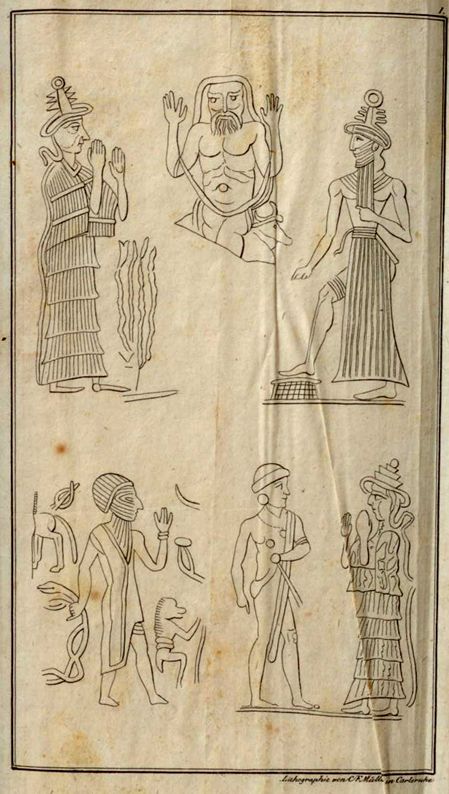 1.
Lithographie von C. F. Müll. in Carlsruhe